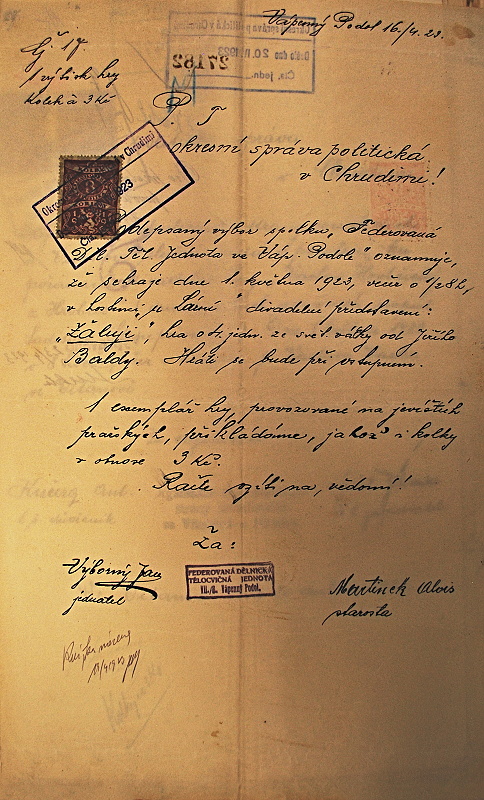 Vápenný Podol 16./4. 23.
Čj. 17
1 výtisk hry
Kolek à 3 Kč
Okresní správa politická v Chrudimi
Došlo dne 20.IV.1923
Čís. jedn.
27182
P. T.
okresní správa politická
v Chrudimi!
Okresní správa v Chrudimi
1923
3
Nížepsaný výbor spolku, „Federovaná
Děl. Těl. Jednota ve Váp. Podole" oznamuje,
že sehraje dne 1. května 1923, večer o 1/2 8 h.,
v hostinci „u Lázní" divadelní představení:
„Žaluji", hra o jedn. ze svět. války od Jiřího
Baldy. Hráti se bude při vstupném.
1 exemplář hry, provozované na jevištích
pražských, přikládáme, jakož i kolky
v obnose 3 Kč.
Račte vzíti na vědomí!
Za:
Výborný Jan
jednatel
FEDEROVANÁ DĚLNICKÁ
TĚLOCVIČNÁ JEDNOTA
VII./8. Vápenný Podol.
Martinek Alois
starosta